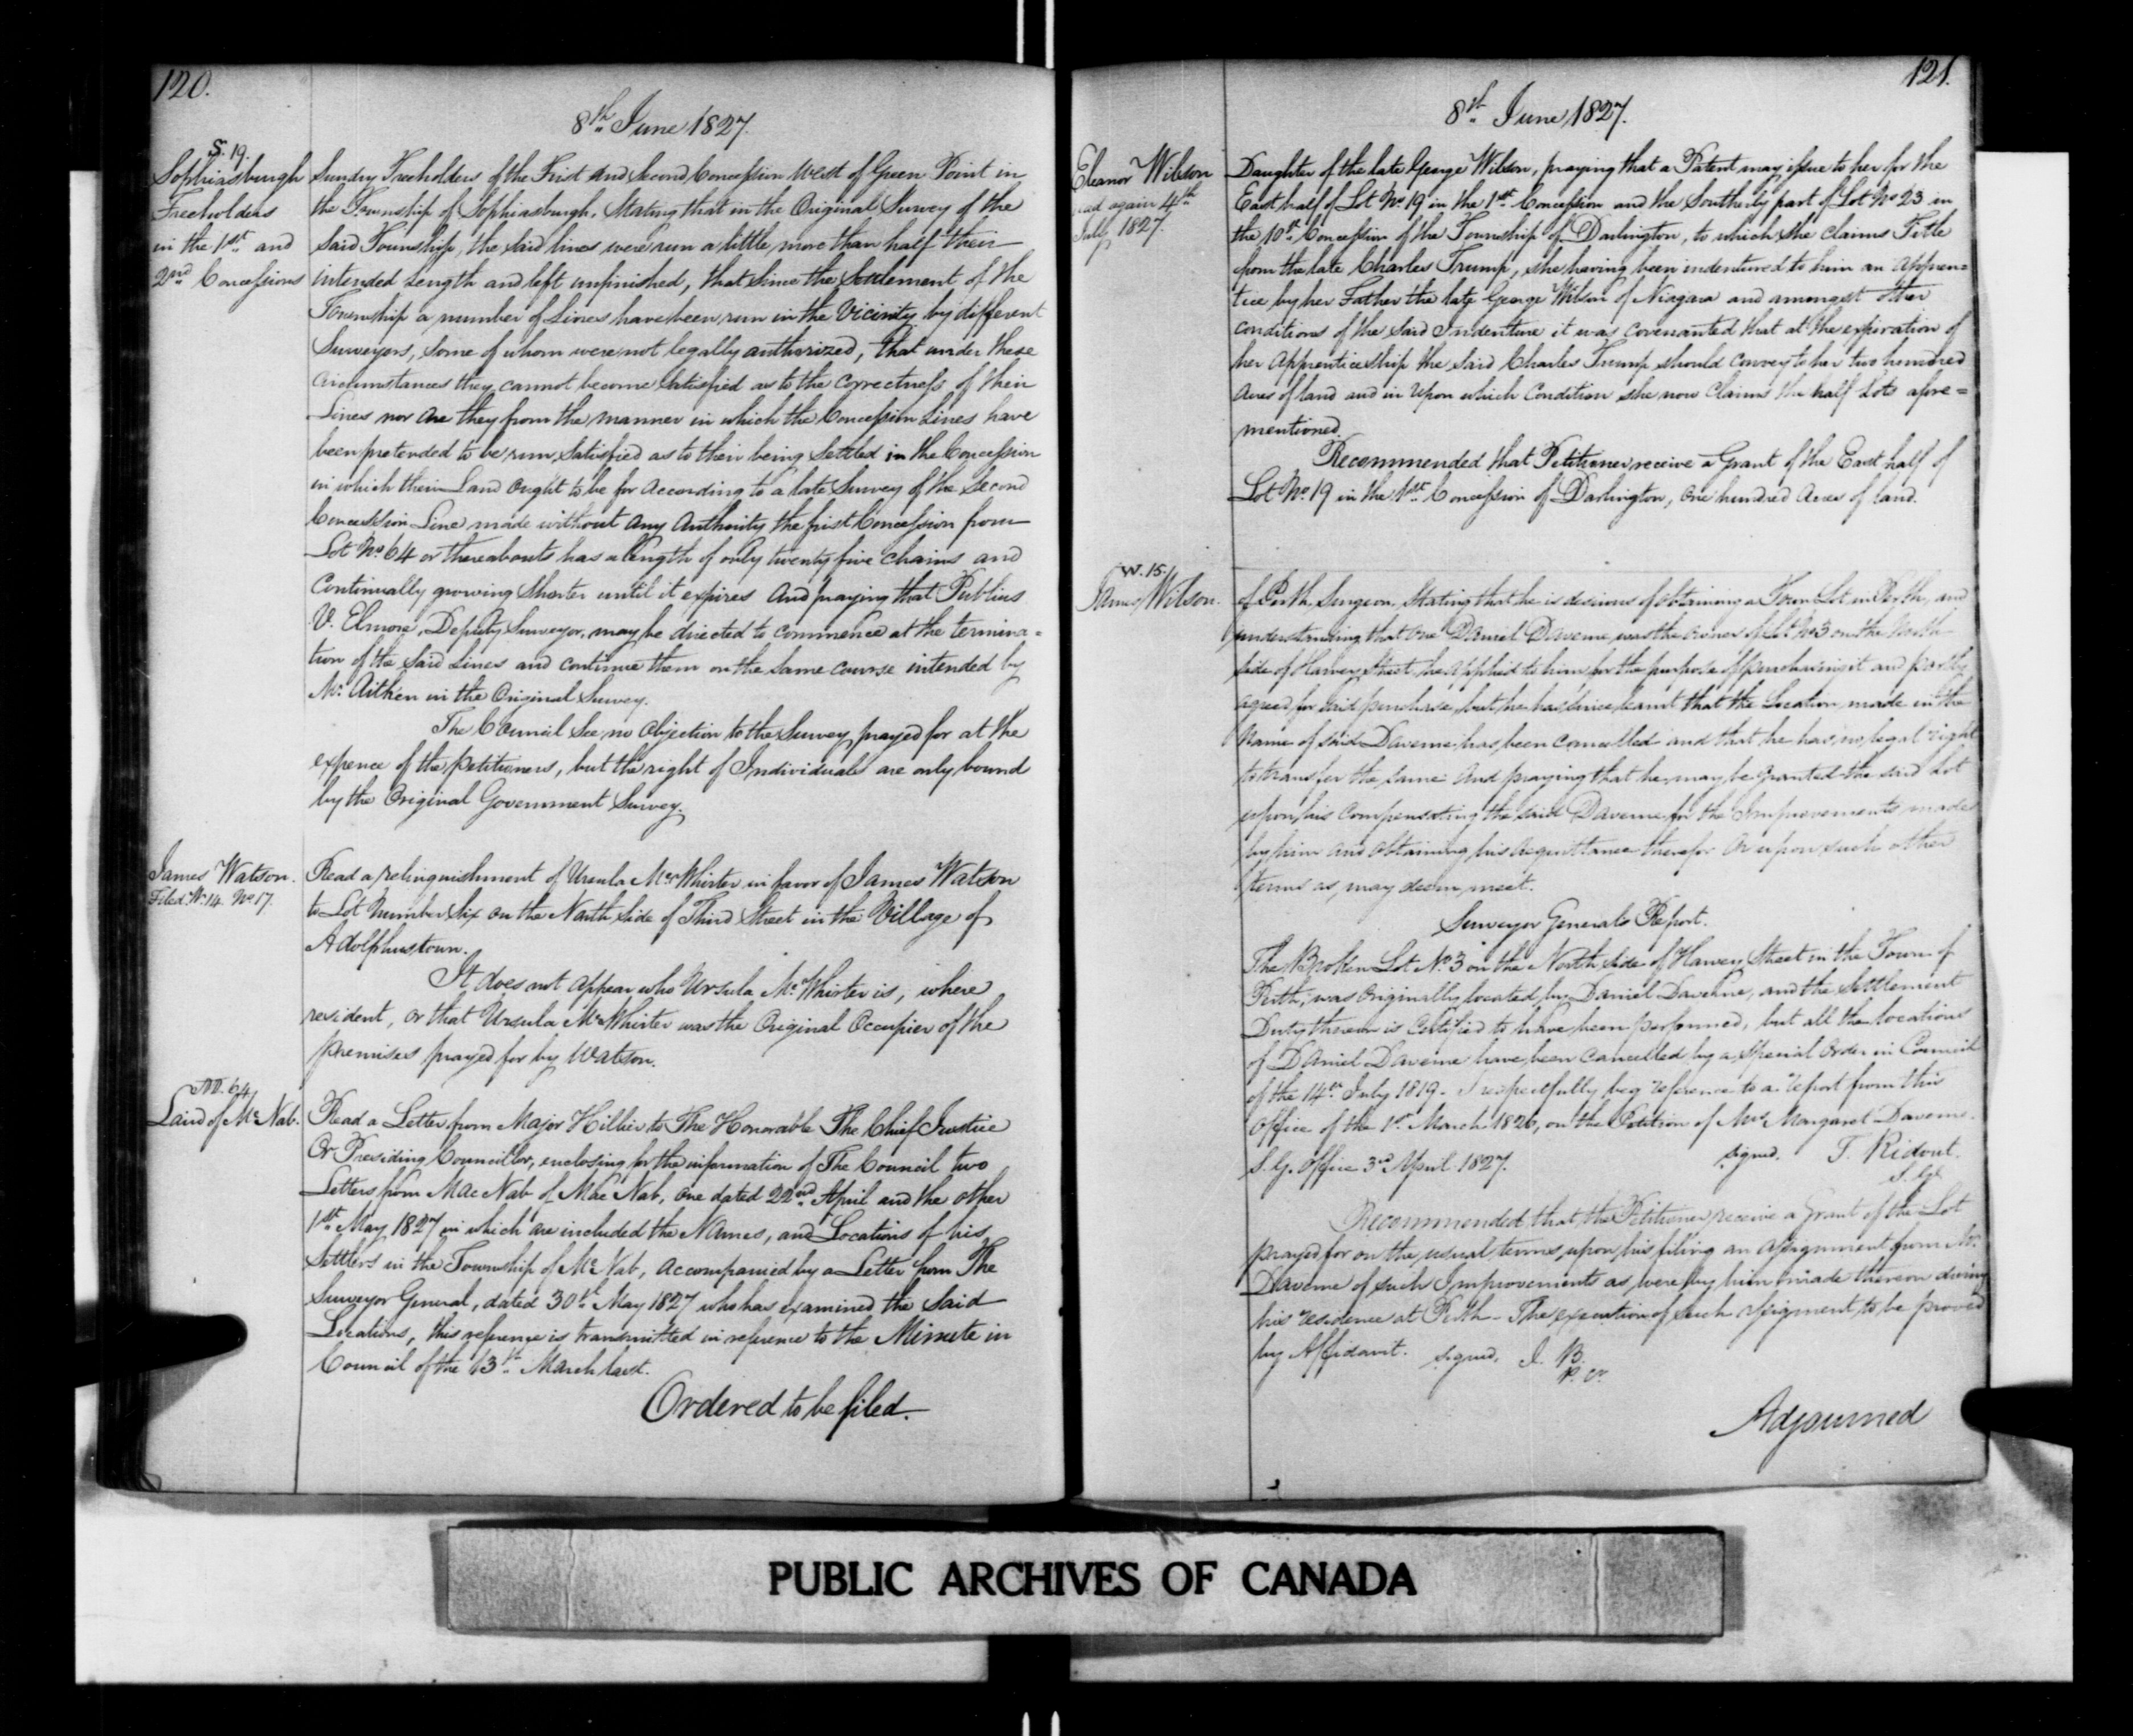 120.
8th June 1827.
S. 19.
Sophiasburgh
Freeholders
in the 1st and
2nd Concessions
Sundry Freeholders of the First and Second Concession West of Green Point in
the Township of Sophiasburgh, Stating that in the Original Survey of the
Said Township, the said lines were run a little more than half their
intended Length and left unfinished, that since the Settlement of the
Township a number of Lines have been run in the Vicinity by different
Surveyors, some of whom were not legally authorized, that under these
Circumstances they cannot become Satisfied as to the Correctness of their
Lines nor are they from the manner in which the Concession Lines have
been pretended to be run, Satisfied as to their being Settled in the Concession
in which their Land ought to be for According to a late Survey of the Second
Concession Line made without any Authority the first Concession from
Lot No 64 or thereabouts has a length of only twenty five Chains and
Continually growing Shorter until it expires And praying that Publius
V. Elmore, Deputy Surveyor, may be directed to Commence at the termina=
tion of the said Lines and Continue them on the same course intended by
Mr. Aitken in the Original Survey.
The Council See no Objection to the Survey prayed for at the
expence of the petitioners, but the right of Individuals are only bound
by the Original Government Survey.
James Watson.
Filed. W. 14. No 17.
Read a relinquishment of Ursula McWhirter in favor of James Watson
to Lot Number Six on the North Side of Third Street in the Village of
Adolphustown.
It does not appear who Ursula McWhirter is, where
resident, or that Ursula McWhirter was the Original Occupier of the
premises prayed for by Watson.
M. 64
Laird of McNab.
Read a Letter from Major Hillier to The Honorable The Chief Justice
Or Presiding Councillor, enclosing for the information of The Council two
Letters from Mac Nab of Mac Nab, one dated 22nd April and the other
1st May 1827 in which are included the Names, and Locations of his
Settlers in the Township of McNab, accompanied by a Letter from The
Surveyor General, dated 30th May 1827 who has examined the Said
Locations, this reference is transmitted in reference to the Minute in
Council of the 13th March last.
Ordered to be filed.
121.
8th June 1827.
Eleanor Wilson
read again 4th
July 1827.
Daughter of the late George Wilson, praying that a Patent may issue to her for the
East half of Lot No 19 in the 1st Concession and the Southerly part of Lot No 23 in
the 10th Concession of the Township of Darlington, to which she claims Title
from the late Charles Trump, she having been indentured to him an Appren=
tice by her Father the late George Wilson of Niagara and amongst other
conditions of the said Indenture it was Covenanted that at the expiration of
her Apprenticeship the said Charles Trump should Convey to her two hundred
Acres of land and in Upon which Condition she now Claims the half Lots afore=
mentioned.
Recommended that Petitioner receive a Grant of the East half of
Lot No 19 in the 1st Concession of Darlington, One hundred Acres of land.
W. 15.
James Wilson.
of Perth, Surgeon, Stating that he is desirous of obtaining a Town Lot in Perth, and
understanding that One Daniel Daverne, was the Owner of Lot No 3 on the North
side of Harvey Street, he applied to him for the purpose of purchasing it and partly
agreed for said purchase, but he has since learnt that the Location made in the
Name of said Daverne has been Cancelled and that he has no legal right
to transfer the same And praying that he may be Granted the said Lot
upon his Compensating the said Daverne for the Improvements made
by him and Obtaining his Acquittance therefor Or upon such other
terms as, may deem meet.
Surveyor Generals Report.
The Broken Lot No. 3 on the North Side of Harvey Street in the Town of
Perth, was Originally located by Daniel Daverne, and the Settlement
Duty thereon is Certified to have been performed, but all the locations
of Daniel Daverne have been Cancelled by a Special Order in Council
of the 14th July 1819. I respectfully beg reference to a report from this
Office of the 1st March 1826, on the Petition of Mrs Margaret Daverne.
signed. T. Ridout.
S. G. Office 3rd April 1827. S. Gl
Recommended that the Petitioner receive a Grant of the Lot
prayed for on the usual terms, upon his filing an Assignment from Mr.
Daverne of such Improvements as were by him made thereon during
his residence at Perth - The execution of such Assignment to be proved
by Affidavit. signed, J. B.
P. Cr.
Adjourned
PUBLIC ARCHIVES OF CANADA